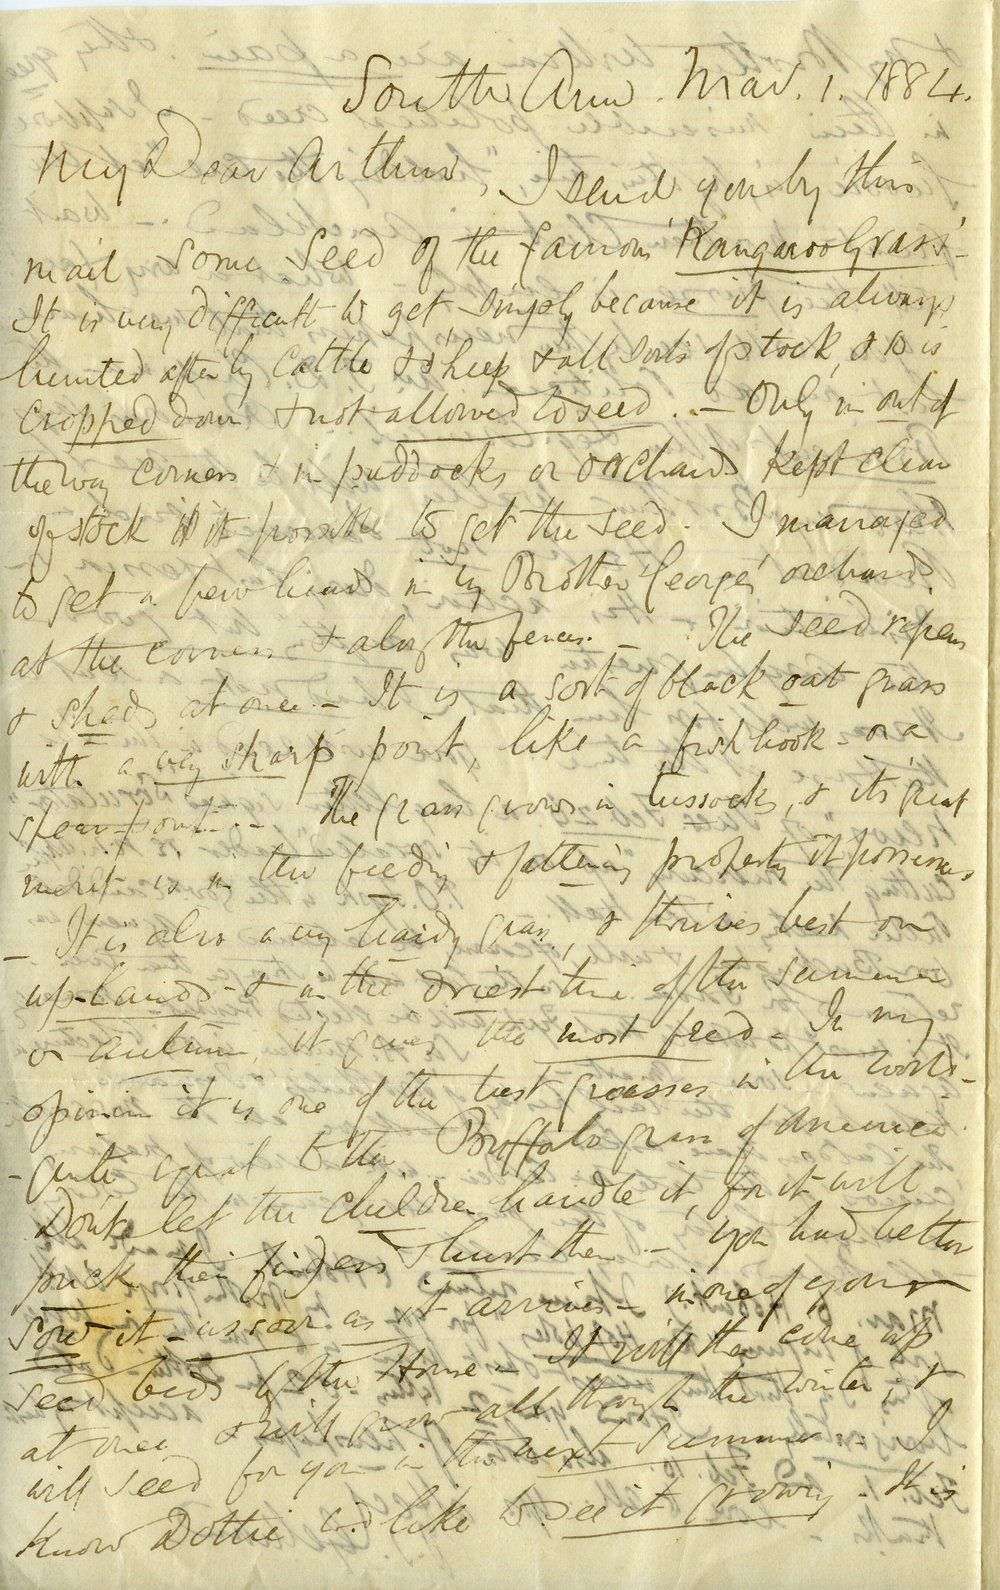 South Arm. Mar. 1. 1884.
My Dear Arthur, I send you by this
mail some seed of the famous 'Kangaroo Grass'-
It is very difficult to get, simply because it is always
hunted after by cattle & sheep & all sorts of stock, & so is
cropped down & not allowed to seed. - Only in out of
the way corners & in paddocks or orchards kept clear
of stock is it possible to get the seed. I managed
to get a few heads in my Brother George's orchards
at the corners & along the fences. - The seed ripens
& sheds at once - It is a sort of black oat grass
with a very sharp point, like a fish hook - or a
spear-point. - The grass grows in tussocks, & its great
merit is in the feeding & fattening property it possesses
- It is also a very hardy grass, & thrives best on
up-lands - & in the driest time of the summer
or autumn, it gives the most feed - In my
opinion it is one of the best grasses in the world -
- quite equal to the Buffalo grass of America
Don't let the children handle it, for it will
prick their fingers & hurt them - You had better
sow it - as soon as it arrives - in one of your
seed beds by the House - It will then come up
at once & will grow all through the winter, &
will seed for you in the next summer - I
know Dottie wd. like to see it growing - It is